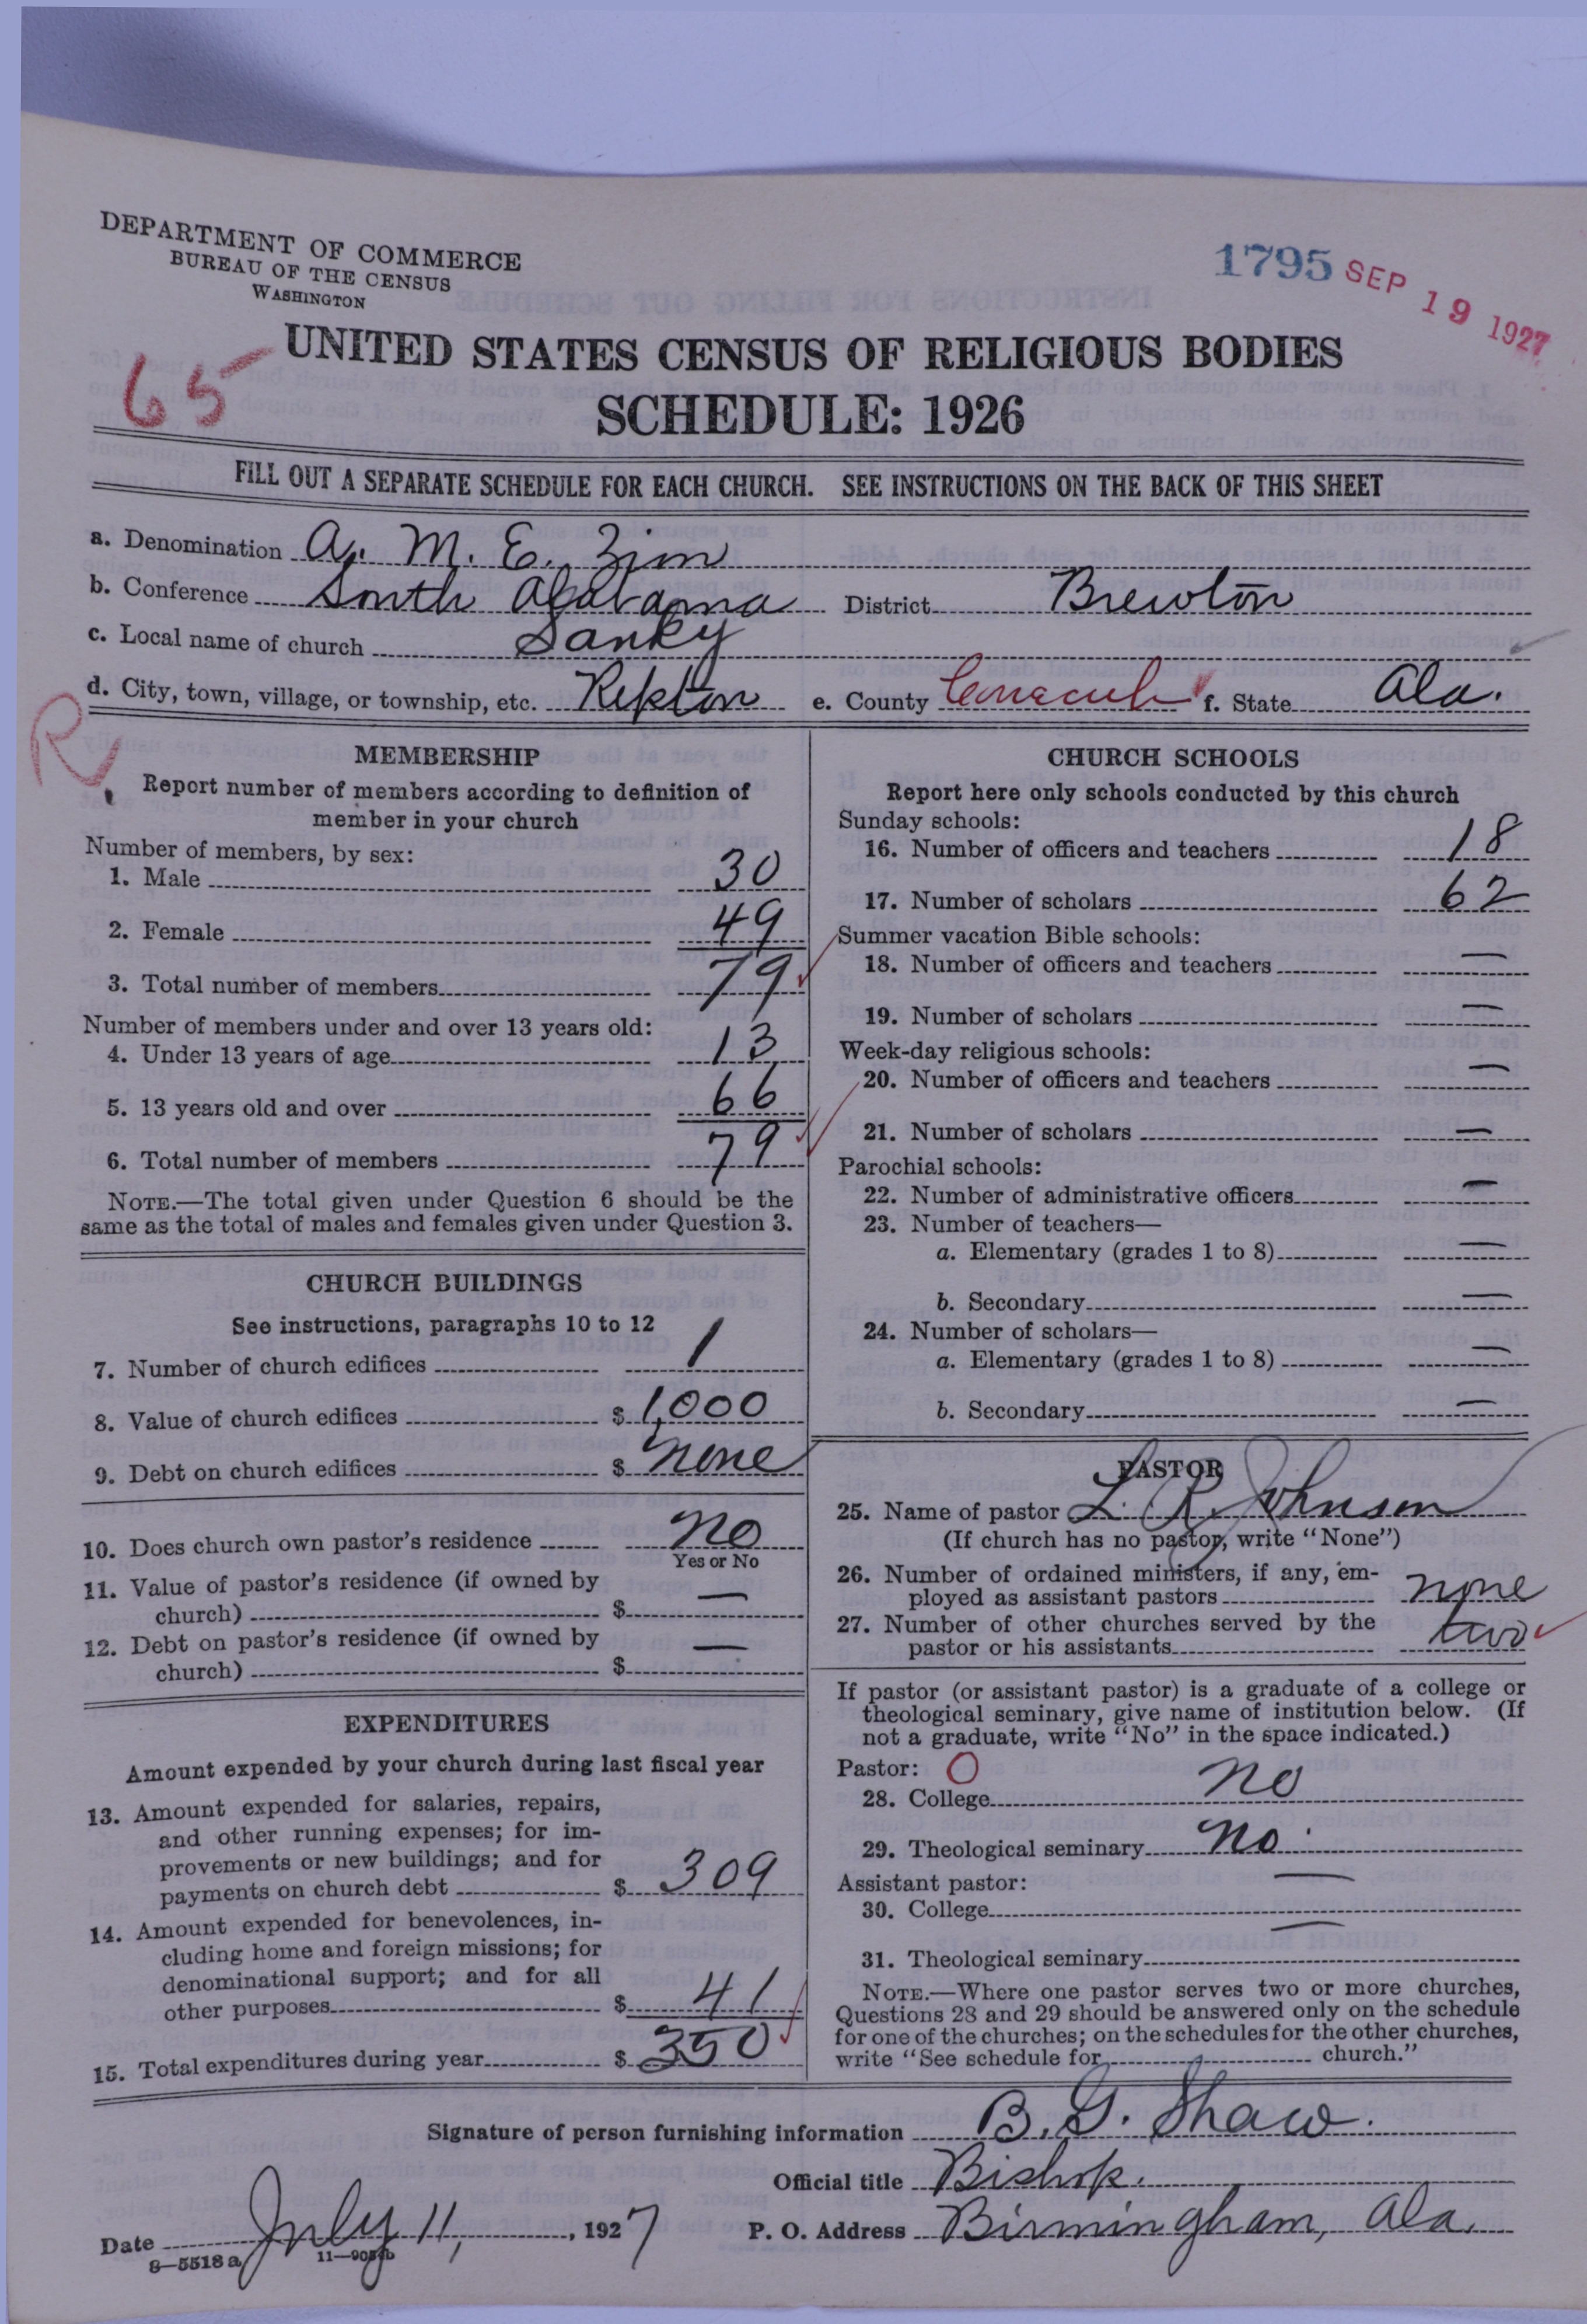 DEPARTMENT OF COMMERCE
BUREAU OF THE CENSUS
WASHINGTON
1795 SEP 19 1927
65
UNITED STATES CENSUS OF RELIGIOUS BODIES
SCHEDULE: 1926
FILL OUT A SEPARATE SCHEDULE FOR EACH CHURCH. SEE INSTRUCTIONS ON THE BACK OF THIS SHEET
a. Denomination A. M. E. Zion
b. Conference South Alabama District Brewton
c. Local name of church Sanky
d. City, town, village, or township, etc. Repton e. County Conecuh f. State Ala.
R
MEMBERSHIP
Report number of members according to definition of
member in your church
Number of members, by sex:
1. Male 30
2. Female 49
3. Total number of members 79
Number of members under and over 13 years old:
4. Under 13 years of age 13
5. 13 years old and over 66
6. Total number of members 79
NOTE.—The total given under Question 6 should be the
same as the total of males and females given under Question 3.
CHURCH BUILDINGS
See instructions, paragraphs 10 to 12
7. Number of church edifices 1
8. Value of church edifices $ 1,000
9. Debt on church edifices $ none
10. Does church own pastor's residence no
Yes or No
11. Value of pastor's residence (if owned by
church) $ —
12. Debt on pastor's residence (if owned by
church) $ —
EXPENDITURES
Amount expended by your church during last fiscal year
13. Amount expended for salaries, repairs,
and other running expenses; for im-
provements or new buildings; and for
payments on church debt $ 309
14. Amount expended for benevolences, in-
cluding home and foreign missions; for
denominational support; and for all
other purposes $ 41
15. Total expenditures during year $ 350
CHURCH SCHOOLS
Report here only schools conducted by this church
Sunday schools:
16. Number of officers and teachers 18
17. Number of scholars 62
Summer vacation Bible schools:
18. Number of officers and teachers —
19. Number of scholars —
Week-day religious schools:
20. Number of officers and teachers —
21. Number of scholars —
Parochial schools:
22. Number of administrative officers —
23. Number of teachers—
a. Elementary (grades 1 to 8) —
b. Secondary —
24. Number of scholars—
a. Elementary (grades 1 to 8) —
b. Secondary —
PASTOR
25. Name of pastor L. R. Johnson
(If church has no pastor, write "None")
26. Number of ordained ministers, if any, em-
ployed as assistant pastors none
27. Number of other churches served by the
pastor or his assistants two
If pastor (or assistant pastor) is a graduate of a college or
theological seminary, give name of institution below. (If
not a graduate, write "No" in the space indicated.)
Pastor: O
28. College no
29. Theological seminary no.
Assistant pastor: —
30. College
31. Theological seminary —
NOTE.—Where one pastor serves two or more churches,
Questions 28 and 29 should be answered only on the schedule
for one of the churches; on the schedules for the other churches,
write "See schedule for church."
Signature of person furnishing information B. G. Shaw.
Official title Bishop.
Date July 11, 1927 P. O. Address Birmingham, Ala.
8—5518 a 11—9054b